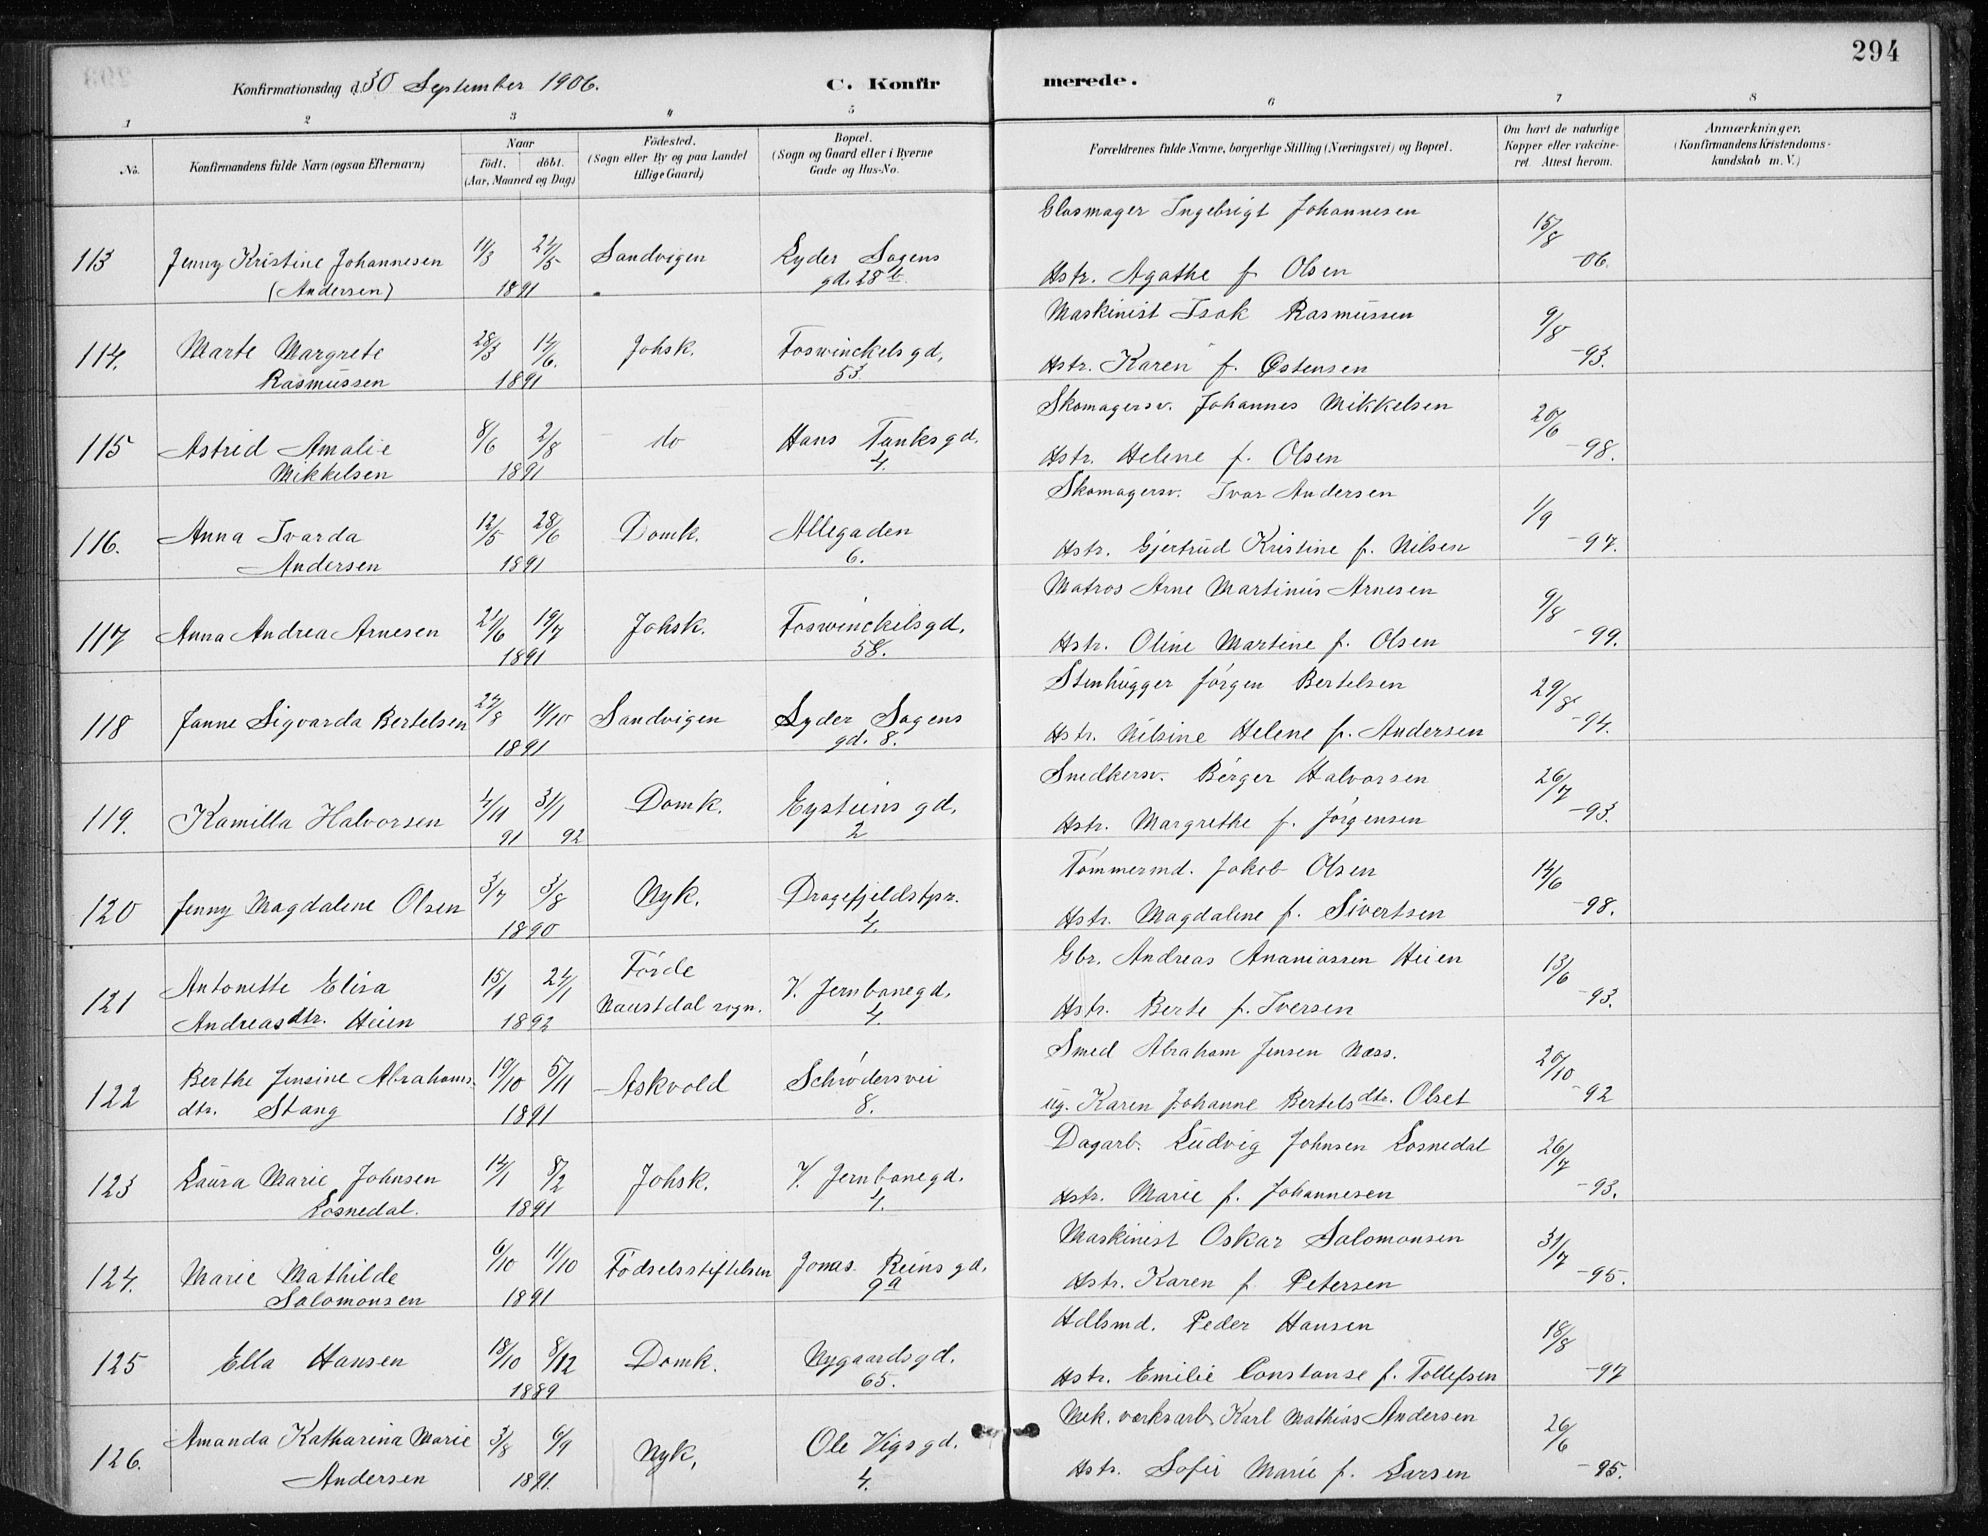 294
Konfirmationsdag d. 30 September 1906.
C. Konfirmerede.
1 2 3 4 5 6 7 8
No.
Konfirmandens fulde Navn (ogsaa Efternavn)
Naar
födt. döbt.
(Aar, Maaned og Dag)
Födested.
(Sogn eller By og paa Landet
tillige Gaard)
Bopæl.
(Sogn og Gaard eller i Byerne
Gade og Hus-No.
Forældrenes fulde Navne, borgerlige Stilling (Næringsvei) og Bopæl.
Om havt de naturlige
Kopper eller vakcine-
ret. Attest herom.
Anmærkninger.
(Konfirmandens Kristendoms-
kundskab m. V.)
Glasmager Ingebrigt Johannesen 15/8
113 Jenny Kristine Johannesen 11/3 24/5 Sandvigen Lyder Sagens
(Andersen) 1891 gd. 28 b. Hstr. Agathe f. Olsen -06.
Maskinist Isak Rasmussen 9/8
114. Marte Margrete 28/3 14/6. Johsk. Foswinckelsgd.
Rasmussen 1891 53. Hstr. Karen f. Östensen -93.
Skomagersv. Johannes Mikkelsen 20/6
115 Astrid Amalie 8/6 2/8 do Hans Tanksgd.
Mikkelsen 1891 4. Hstr. Helene f. Olsen -98.
Skomagersv. Ivar Andersen 1/9
116. Anna Ivarda 12/5 28/6 Domk. Allegaden
Andersen 1891 6. Hstr. Gjertrud Kristine f. Nilsen -97.
Matros Arne Martinus Arnesen 9/8
117 Anna Andrea Arnesen 21/6 19/7 Johsk. Foswinckelsgd.
1891 58. Hstr. Oline Martine f. Olsen -99.
Stenhugger Jörgen Bertelsen 29/8
118 Janne Sigvarda Bertelsen 27/8 11/10 Sandvigen Lyder Sagens
1891 gd. 8. Hstr. Nilsine Helene f. Andersen -94.
Snedkersv. Berger Halvorsen 26/7
119. Kamilla Halvorsen 4/11 31/1 Domk. Eysteinsgd.
91 92 2 Hstr. Margrethe f. Jörgensen -93.
Tömmermd. Jakob Olsen 14/6
120 Jenny Magdalene Olsen 3/7 3/8 Nyk. Dragefjeldstpr.
1890 4. Hstr. Magdalene f. Sivertsen -98.
Gbr. Andreas Ananiassen Heien 13/6
121 Antonette Elisa 15/1 24/1 Förde V. Jernbanegd.
Andreasdtr. Heien 1892 Naustdal sogn. 4. Hstr. Berte f. Iversen -93.
Smed Abraham Jensen Næss. 20/10
122 Berthe Jensine Abrahams- 19/10 5/11 Askvold Schrödersvei
dtr. Stang 1891 8. ug. Karen Johanne Bertelsdtr. Olset -92
Dagarb. Ludvig Johnsen Losnedal 26/7
123 Laura Marie Johnsen 14/1 8/2 Johsk. V. Jernbanegd.
Losnedal. 1891 4. Hstr. Marie f. Johannesen -93.
Maskinist Oskar Salomonsen 31/7
124. Marie Mathilde 6/10 11/10 Födselsstiftelsen Jonas Reins gd.
Salomonsen 1891 9a Hstr. Karen f. Petersen -95.
Hdlsmd. Peder Hansen 18/8
125 Ella Hansen 18/10 8/12 Domk. Nygaardsgd.
1889 65. Hstr. Emilie Constanse f. Tollefsen -97
Mek. værksarb. Karl Mathias Andersen 26/6
126. Amanda Katharina Marie 3/8 6/9 Nyk. Ole Vigsgd.
Andersen 1891. 4. Hstr. Sofie Marie f. Larsen -95.